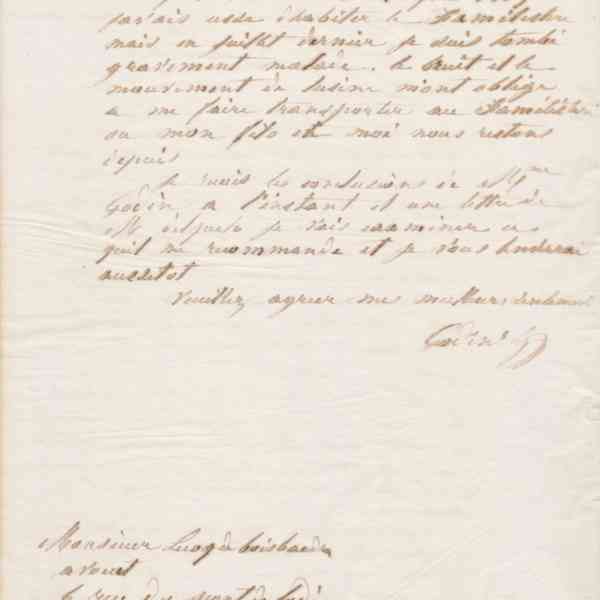 javais cessé d'habiter le Familistère
mais en juillet dernier je suis tombé
gravement malade. le bruit et le
mouvement de lusine m'ont obligé
a me faire transporter au Familistère
ou mon fils et moi nous restons
depuis
Je reçois les conclusions de Mme
Godin a l'instant et une lettre de
M delpech je vais examiner ce
quil me recommande et je vous rendrai
aussitot
Veuillez agréer mes meilleurs sentiments
Godin
Monsieur Lecoq de boisbaudran
avoué
rue du pont de Lodi